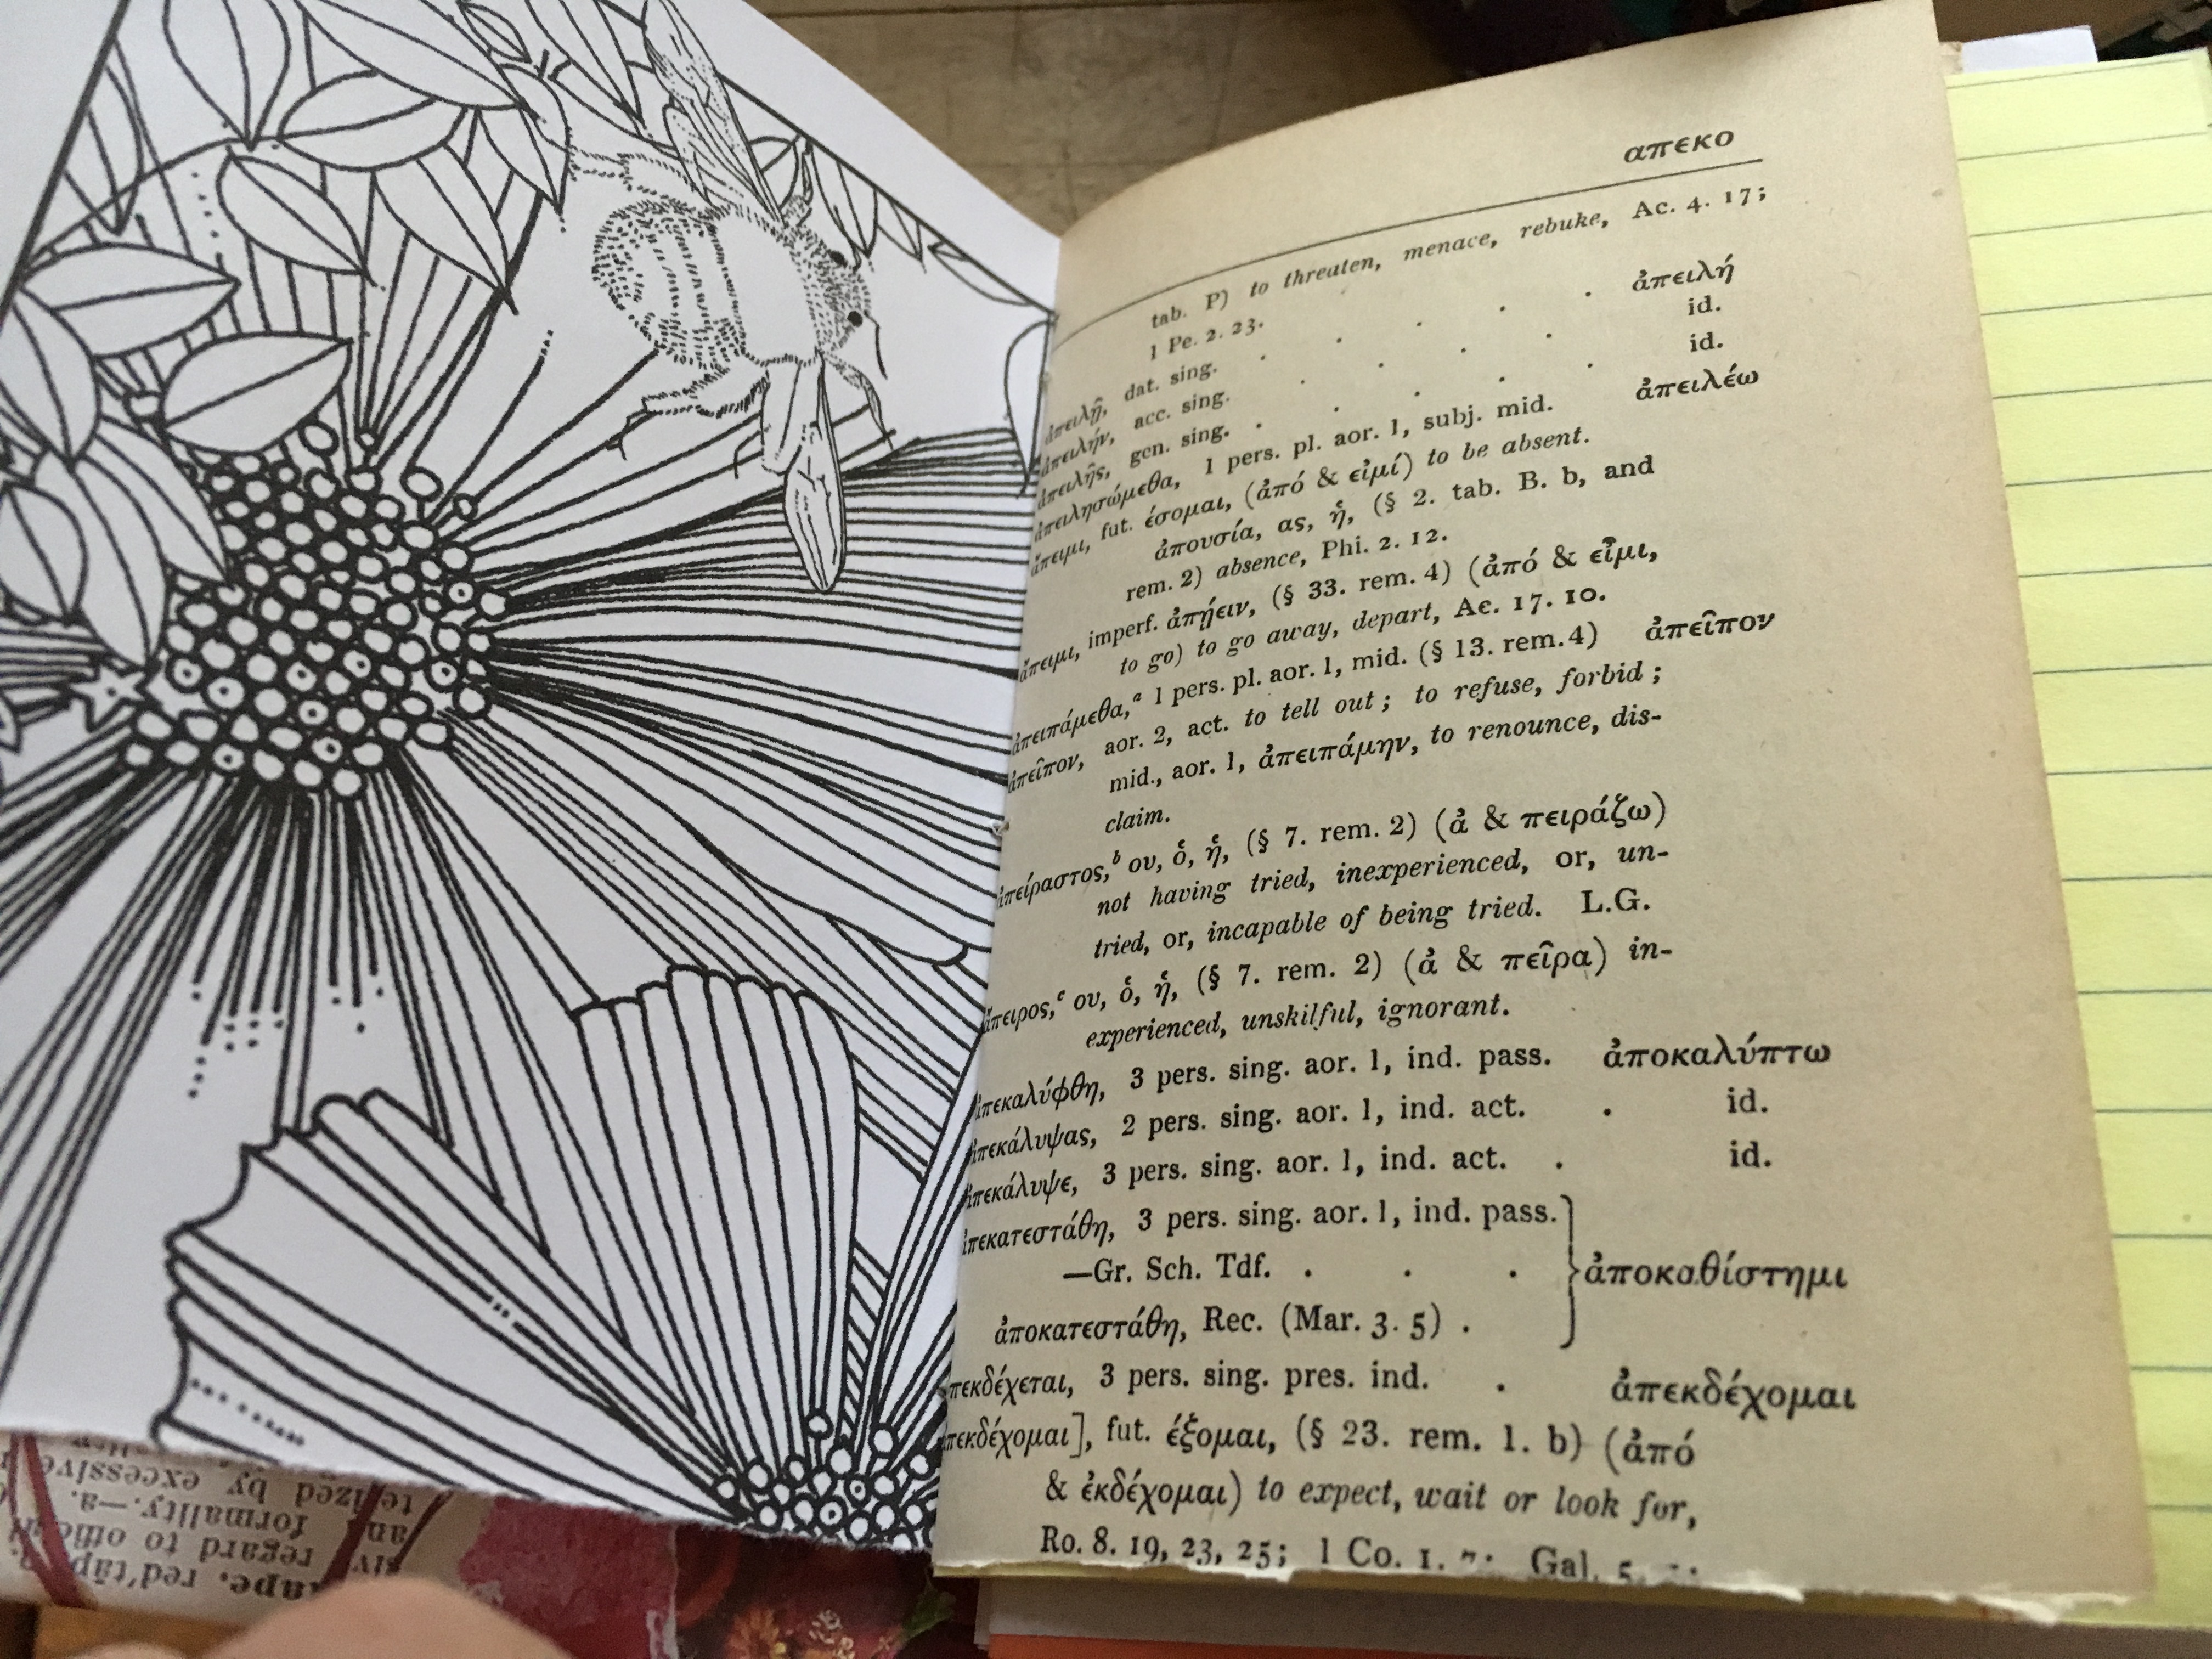 απεκο
tab. P) to threaten, menace, rebuke, Ac. 4. 17;
1 Pe. 2. 23.
ἀπειλῇ, dat. sing. . . . . ἀπειλή
ἀπειλήν, acc. sing. . . . . id.
ἀπειλῆς, gen. sing. . . . . id.
ἀπειλησώμεθα, 1 pers. pl. aor. 1, subj. mid. ἀπειλέω
ἄπειμι, fut. έσομαι, (ἀπό & εἰμί) to be absent.
ἀπουσία, ας, ἡ, (§ 2. tab. B. b, and
rem. 2) absence, Phi. 2. 12.
ἄπειμι, imperf. ἀπῄειν, (§ 33. rem. 4) (ἀπό & εἶμι,
to go) to go away, depart, Ac. 17. 10.
ἀπειπάμεθα,ᵃ 1 pers. pl. aor. 1, mid. (§ 13. rem. 4) ἀπεῖπον
ἀπεῖπον, aor. 2, act. to tell out; to refuse, forbid;
mid., aor. 1, ἀπειπάμην, to renounce, dis-
claim.
ἀπείραστος,ᵇ ου, ὁ, ἡ, (§ 7. rem. 2) (ἀ & πειράζω)
not having tried, inexperienced, or, un-
tried, or, incapable of being tried. L.G.
ἄπειρος,ᶜ ου, ὁ, ἡ, (§ 7. rem. 2) (ἀ & πεῖρα) in-
experienced, unskilful, ignorant.
ἀπεκαλύφθη, 3 pers. sing. aor. 1, ind. pass. ἀποκαλύπτω
ἀπεκάλυψας, 2 pers. sing. aor. 1, ind. act. . id.
ἀπεκάλυψε, 3 pers. sing. aor. 1, ind. act. . id.
ἀπεκατεστάθη, 3 pers. sing. aor. 1, ind. pass.
—Gr. Sch. Tdf. . . . } ἀποκαθίστημι
ἀποκατεστάθη, Rec. (Mar. 3. 5) .
πεκδέχεται, 3 pers. sing. pres. ind. . ἀπεκδέχομαι
πεκδέχομαι], fut. έξομαι, (§ 23. rem. 1. b) (ἀπό
& ἐκδέχομαι) to expect, wait or look for,
Ro. 8. 19, 23, 25; 1 Co. 1. 7; Gal. 5.
tape. red'tāpe
siv regard to offici
an formality.—a.
terized by excessive